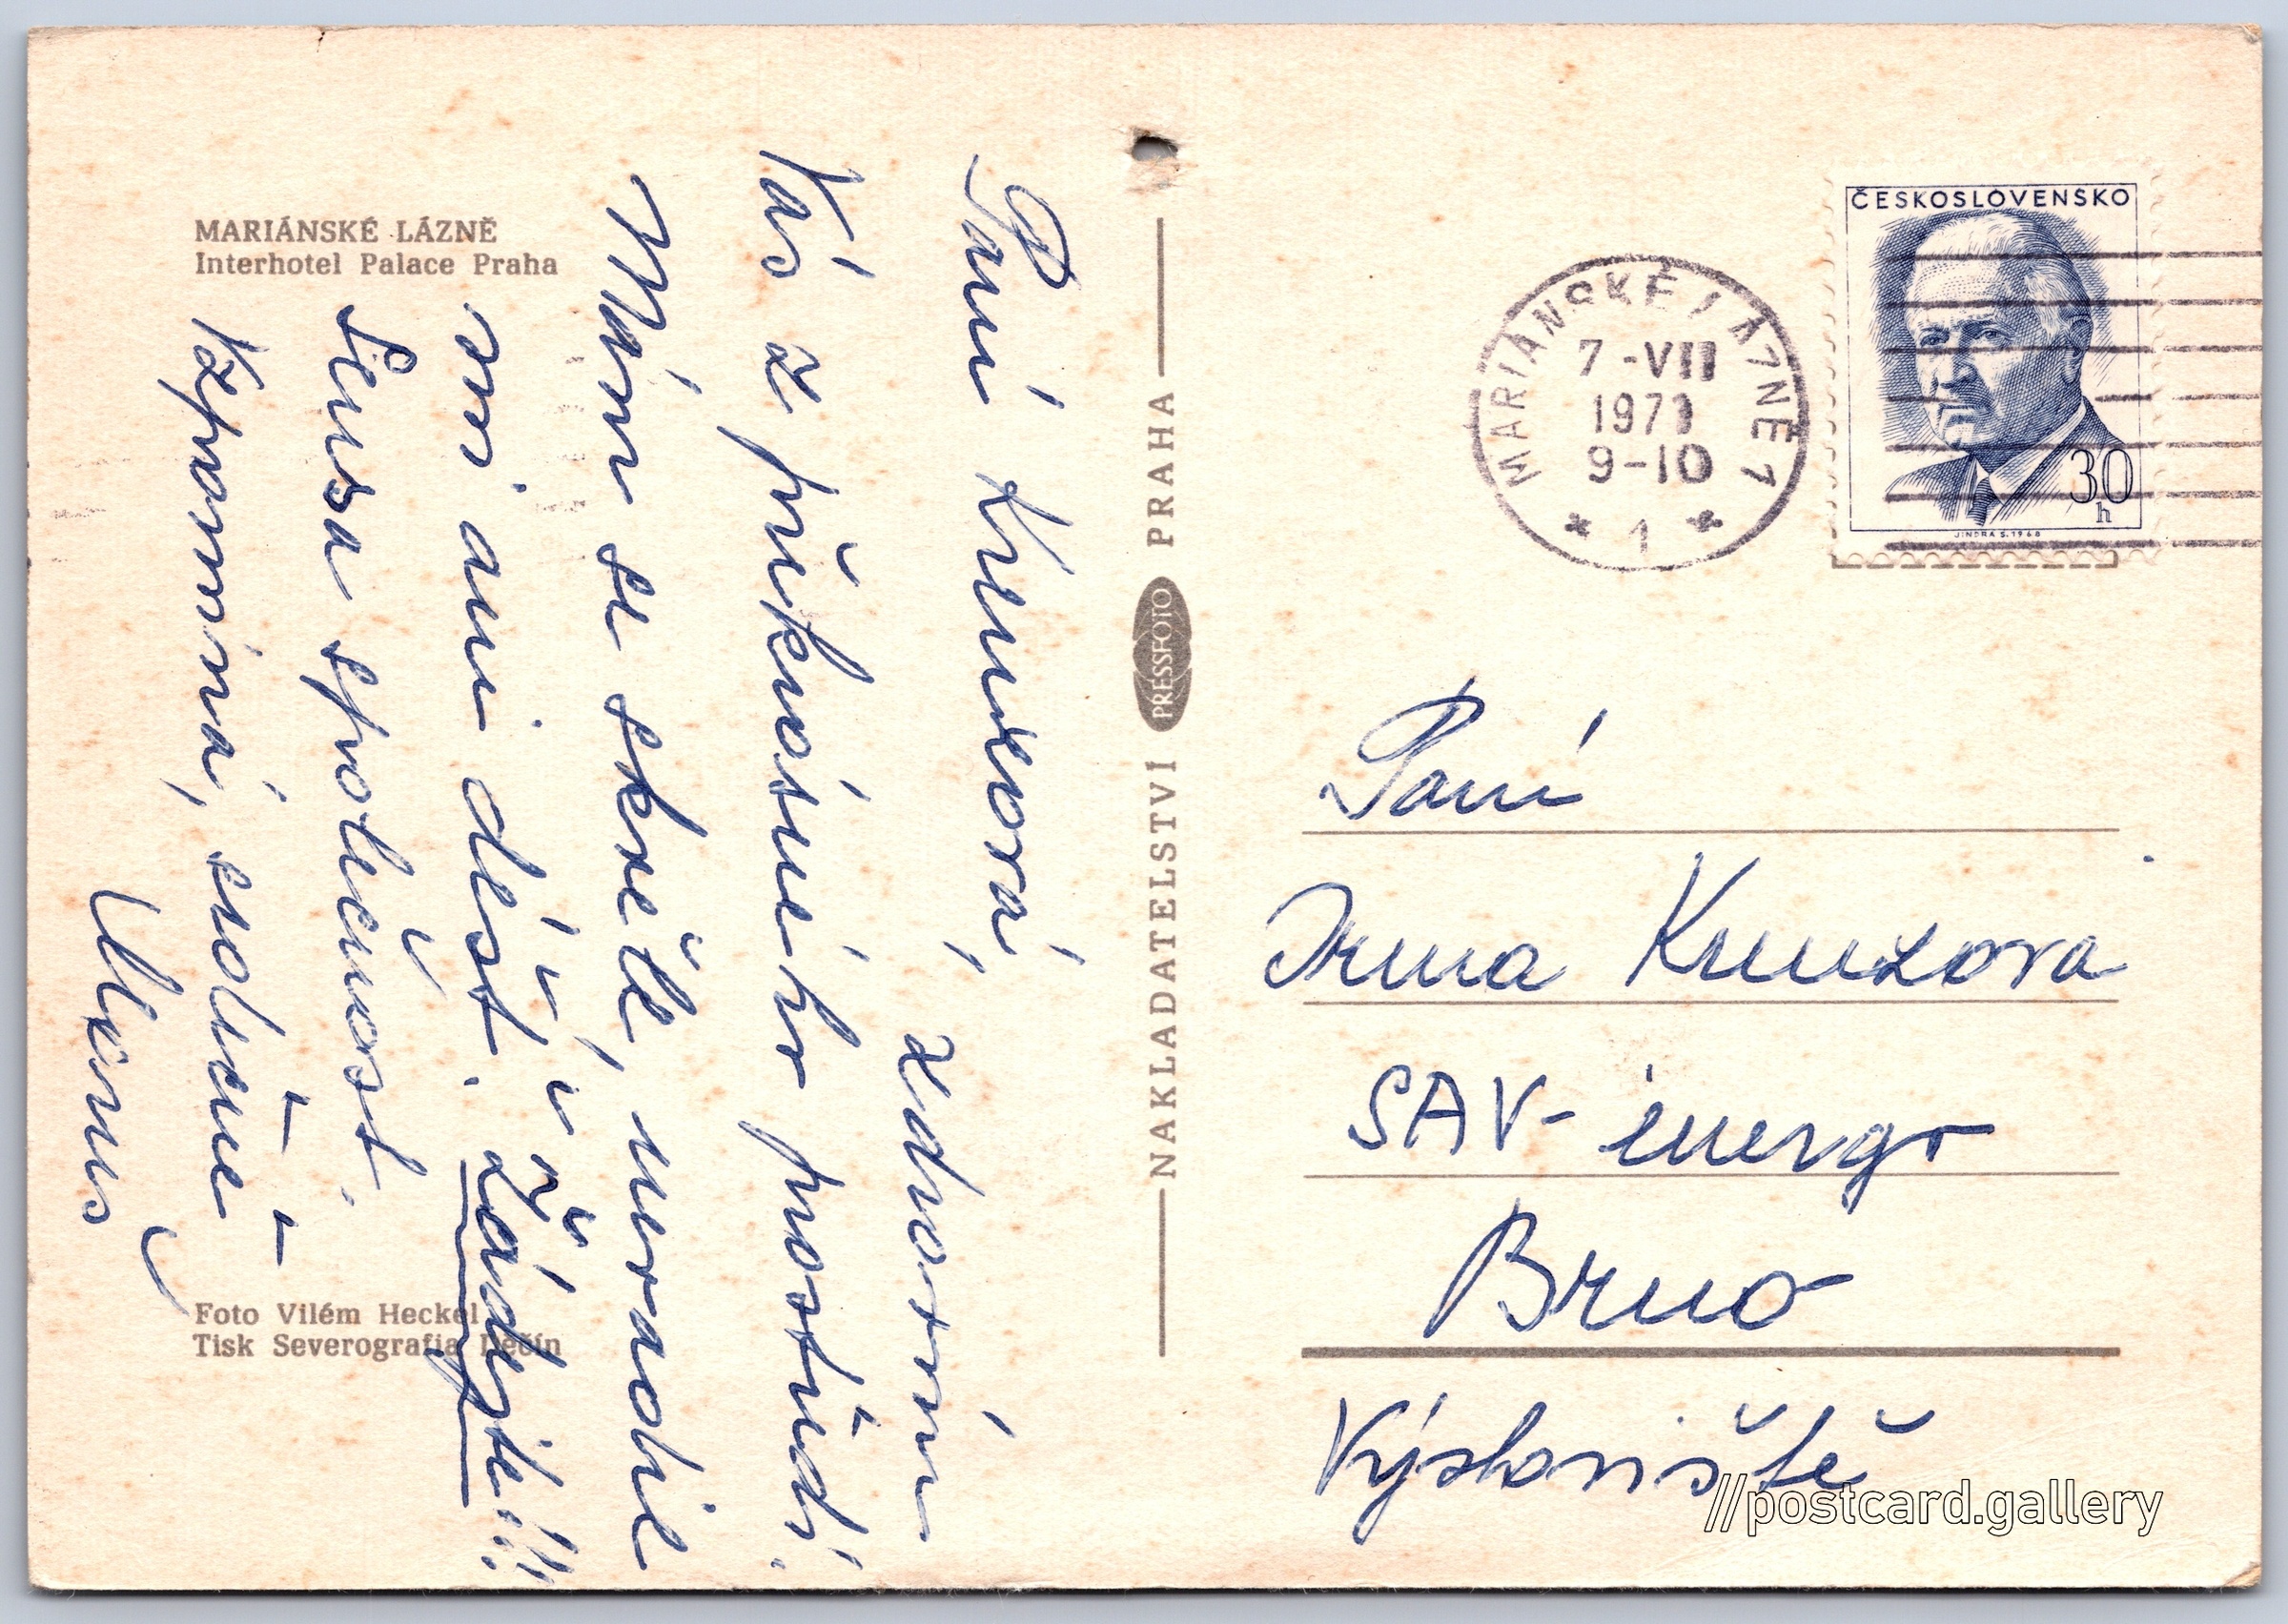 MARIÁNSKÉ LÁZNĚ
Interhotel Palace Praha
Paní Kunzová, zdravím
Vás z překrásného prostředí.
Mám se skvěle, nevadil
mi ani déšť. Žádejte!!!
Senza společnost.
Vzpomíná, srdečně
Foto Vilém Heckel
Tisk Severografia Děčín
NAKLADATELSTVÍ PRESSFOTO PRAHA
MARIÁNSKÉ LÁZNĚ 1
7 -VII
1971
9-10
* 1 *
ČESKOSLOVENSKO
30
h
JINDRA S. 1968
Paní
Irma Kunzova
SAV- inergo
Brno
Výstaviště
//postcard.gallery